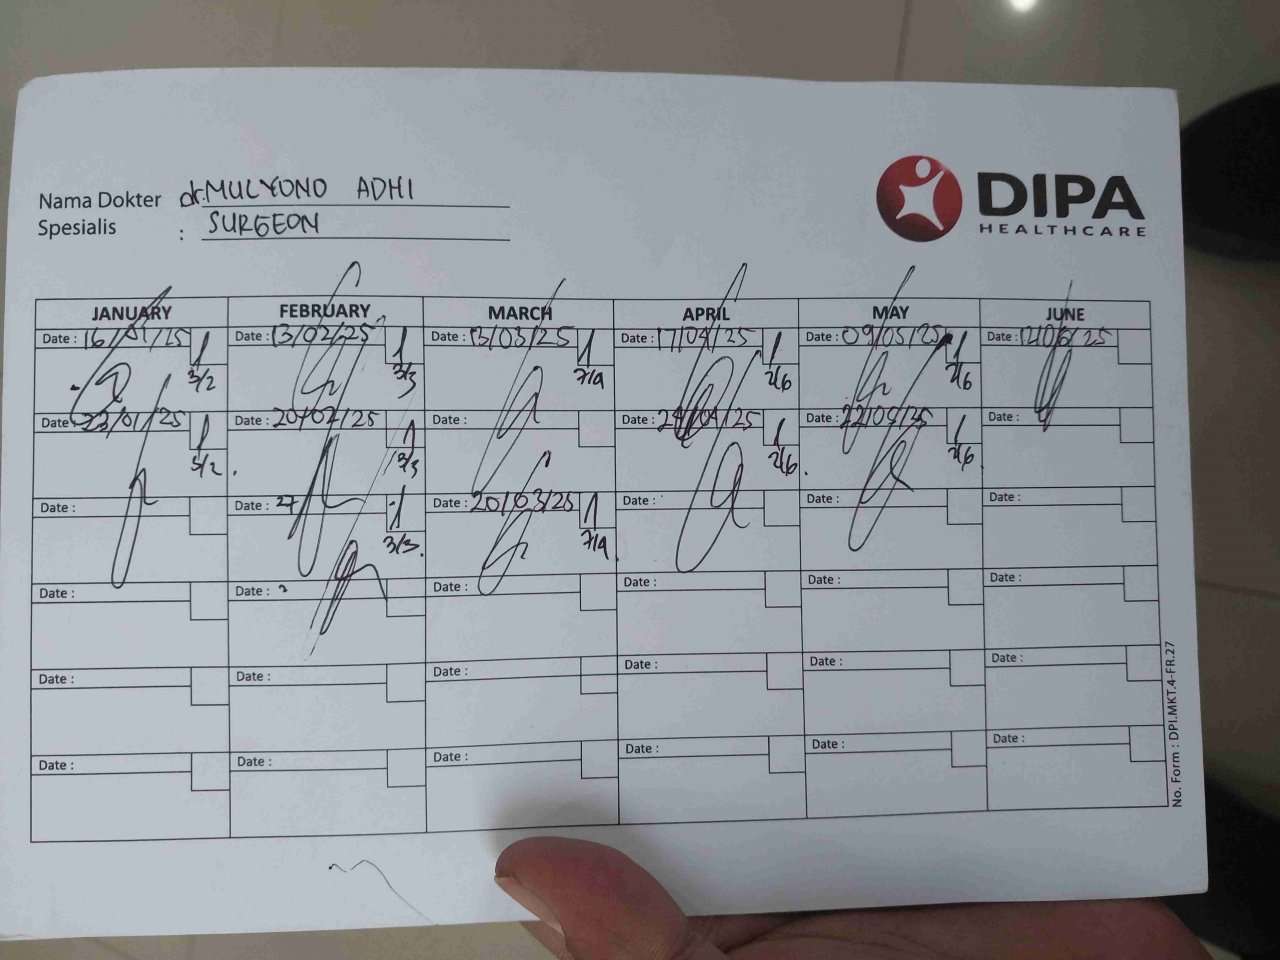 DIPA
HEALTHCARE
Nama Dokter dr. MULYONO ADHI
Spesialis : SURGEON
JANUARY FEBRUARY MARCH APRIL MAY JUNE
Date : 16/01/25 Date : 13/02/25 Date : 13/03/25 Date : 17/04/25 Date : 09/05/25 Date : 12/06/25
3/2 3/3 7/4 2/6 2/6
Date : 23/01/25 Date : 20/02/25 Date : Date : 24/04/25 Date : 22/05/25 Date :
3/2 3/3 2/6 2/6
Date : Date : 27 Date : 20/03/25 Date : Date : Date :
3/3 7/4
Date : Date : Date : Date : Date : Date :
Date : Date : Date : Date : Date : Date :
Date : Date : Date : Date : Date : Date :
No. Form : DPI.MKT.4-FR.27